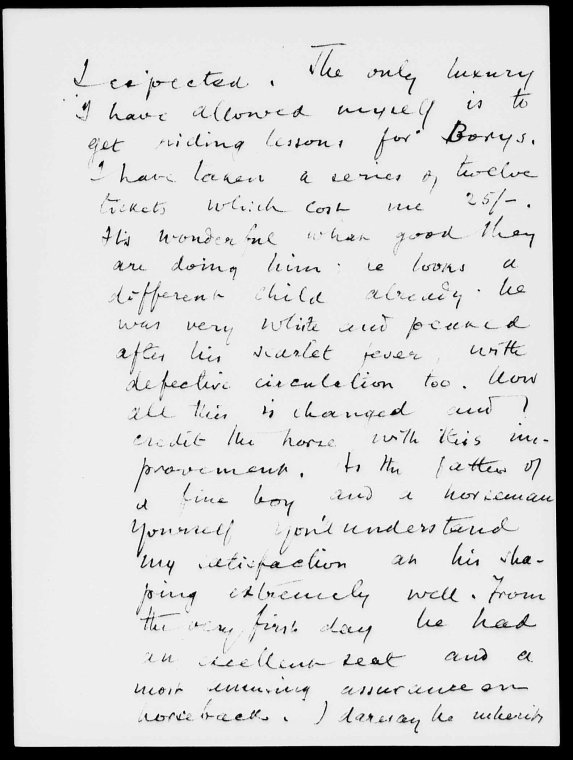 I expected. The only luxury
I have allowed myself is to
get riding lessons for Borys.
I have taken a series of twelve
tickets which cost me 25/-.
It's wonderful what good they
are doing him: he looks a
different child already: he
was very white and peaked
after his scarlet fever, with
defective circulation too. Now
all this is changed and I
credit the horse with this im-
provement. As the father of
a fine boy and a horseman
yourself you'll understand
my satisfaction at his sha-
ping extremely well. From
the very first day he had
an excellent seat and a
most amusing assurance on
horseback. I daresay he inherits